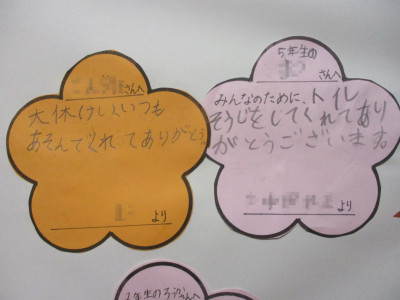 さんへ
大休けいいつも
あそんでくれてありがとう
より
5年生の
さんへ
みんなのために、トイレ
そうじをしてくれてあり
がとうございます。
より
年生の